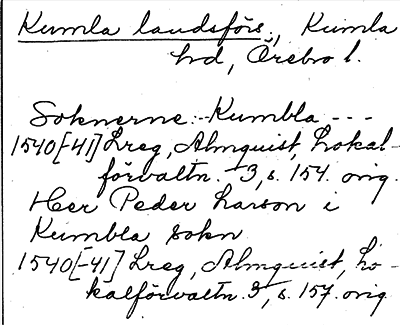 Kumla landsförs., Kumla
hd, Örebro l.
Soknerne: Kumbla ---
1540[-41] Lreg, Almquist, Lokal-
förvaltn. 3, s. 154. orig.
Her Peder Larson i
Kumbla sokn
1540[-41] Lreg, Almquist, Lo-
kalförvaltn. 3, s. 157. orig